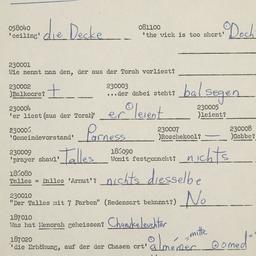 058040 081100
'ceiling' die Decke 'the wick is too short' Doch
230001
Wie nennt man den, der aus der Torah vorliest?
230002 230003
)Balkoore? + ...der dabei steht? bal segen
230004 230005
'er liest (aus der Torah)' er leient )leient?
230006 230007 230008
'Gemeindevorstand' Parness )Roschekool? — )Gabbe?
230009 186090
'prayer shawl' Talles Womit festgemacht? nichts
186080
Talles = Dalles 'Armut'? nichts diesselbe
230010
"Der Talles mit 7 Farben" (Redensart bekannt?) No
187010
Was hat Menorah geheissen? Chanukeleuchter
187020 mitte
'die Erhöhung, auf der der Chasen ort' almemer